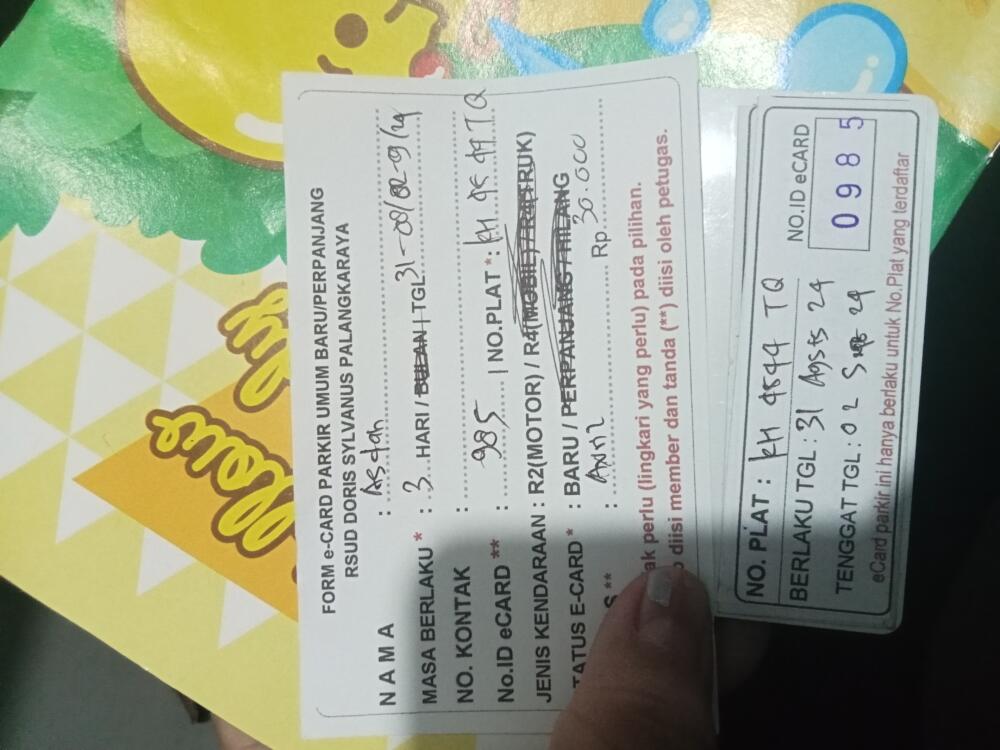 FORM e-CARD PARKIR UMUM BARU/PERPANJANG
RSUD DORIS SYLVANUS PALANGKARAYA
N A M A : Asdan
MASA BERLAKU * : 3 HARI / BULAN | TGL 31-08/02-9/24
NO. KONTAK :
No.ID eCARD ** : 985 | NO.PLAT * : KH 4544 TQ
JENIS KENDARAAN : R2(MOTOR) / R4(MOBIL) / R6(TRUK)
TATUS E-CARD * : BARU / PERPANJANG / HILANG
S ** : Rp. 30.000
ak perlu (lingkari yang perlu) pada pilihan.
diisi member dan tanda (**) diisi oleh petugas.
NO. PLAT : KH 4544 TQ
BERLAKU TGL : 31 Agsts 24
TENGGAT TGL : 02 Sept 24
NO.ID eCARD
0985
eCard parkir ini hanya berlaku untuk No.Plat yang terdaftar